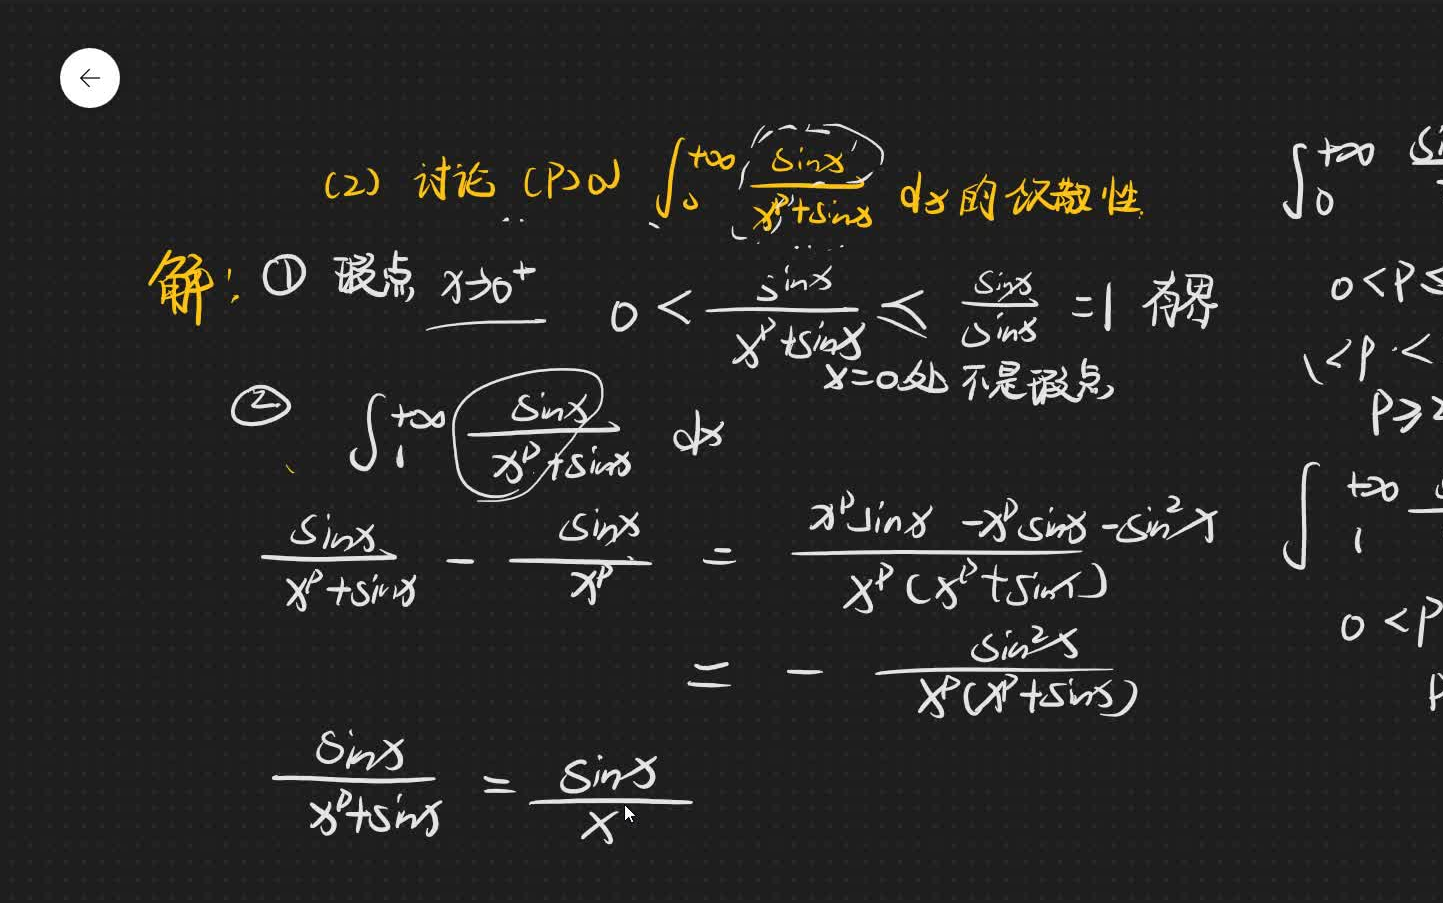 (2) 讨论 (P>0) ∫₀^{+∞} sinx/(x^p+sinx) dx 的敛散性.
解: ① 瑕点 x→0⁺ 0 < sinx/(x^p+sinx) ≤ sinx/sinx =1 有界
x=0处 不是瑕点,
② ∫₁^{+∞} sinx/(x^p+sinx) dx
sinx/(x^p+sinx) - sinx/x^p = (x^p sinx - x^p sinx - sin²x)/(x^p(x^p+sinx))
= - sin²x/(x^p(x^p+sinx))
sinx/(x^p+sinx) = sinx/x
∫₀^{+∞} si
0<P≤
1<P<
P≥
∫₁^{+∞}
0<P